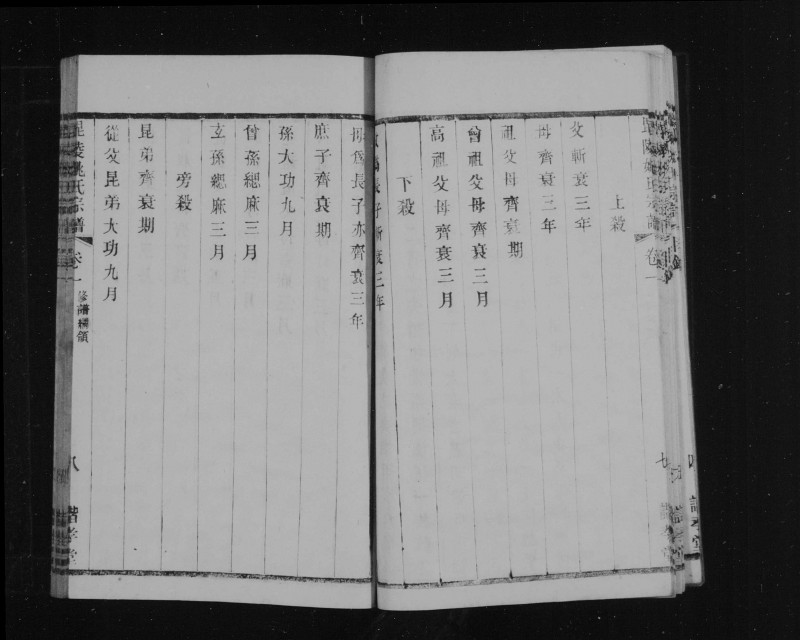 上殺
父斬衰三年
母齊衰三年
祖父母齊衰期
曾祖父母齊衰三月
高祖父母齊衰三月
下殺
長子斬衰三年
母爲長子亦齊衰三年
庶子齊衰期
孫大功九月
曾孫緦麻三月
玄孫緦麻三月
旁殺
昆弟齊衰期
從父昆弟大功九月
毘陵姚氏宗譜 卷一 修譜綱領 八